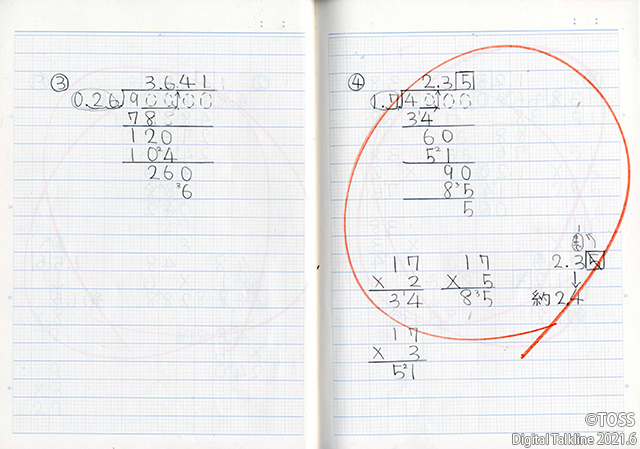 ③
3.6.4 1
0.26 9 0 0 0 0
7 8
1 2 0
1 0 2 4
2 6 0
3 6
④
2.3 5
1.7 4 0 0 0
3 4
6 0
5 2 1
9 0
8 3 5
5
1 7
× 2
3 1 4
1 7
× 5
8 3 5
2.3 5
約2.4
1 7
× 3
5 2 1
©TOSS
Digital Talkline 2021.6